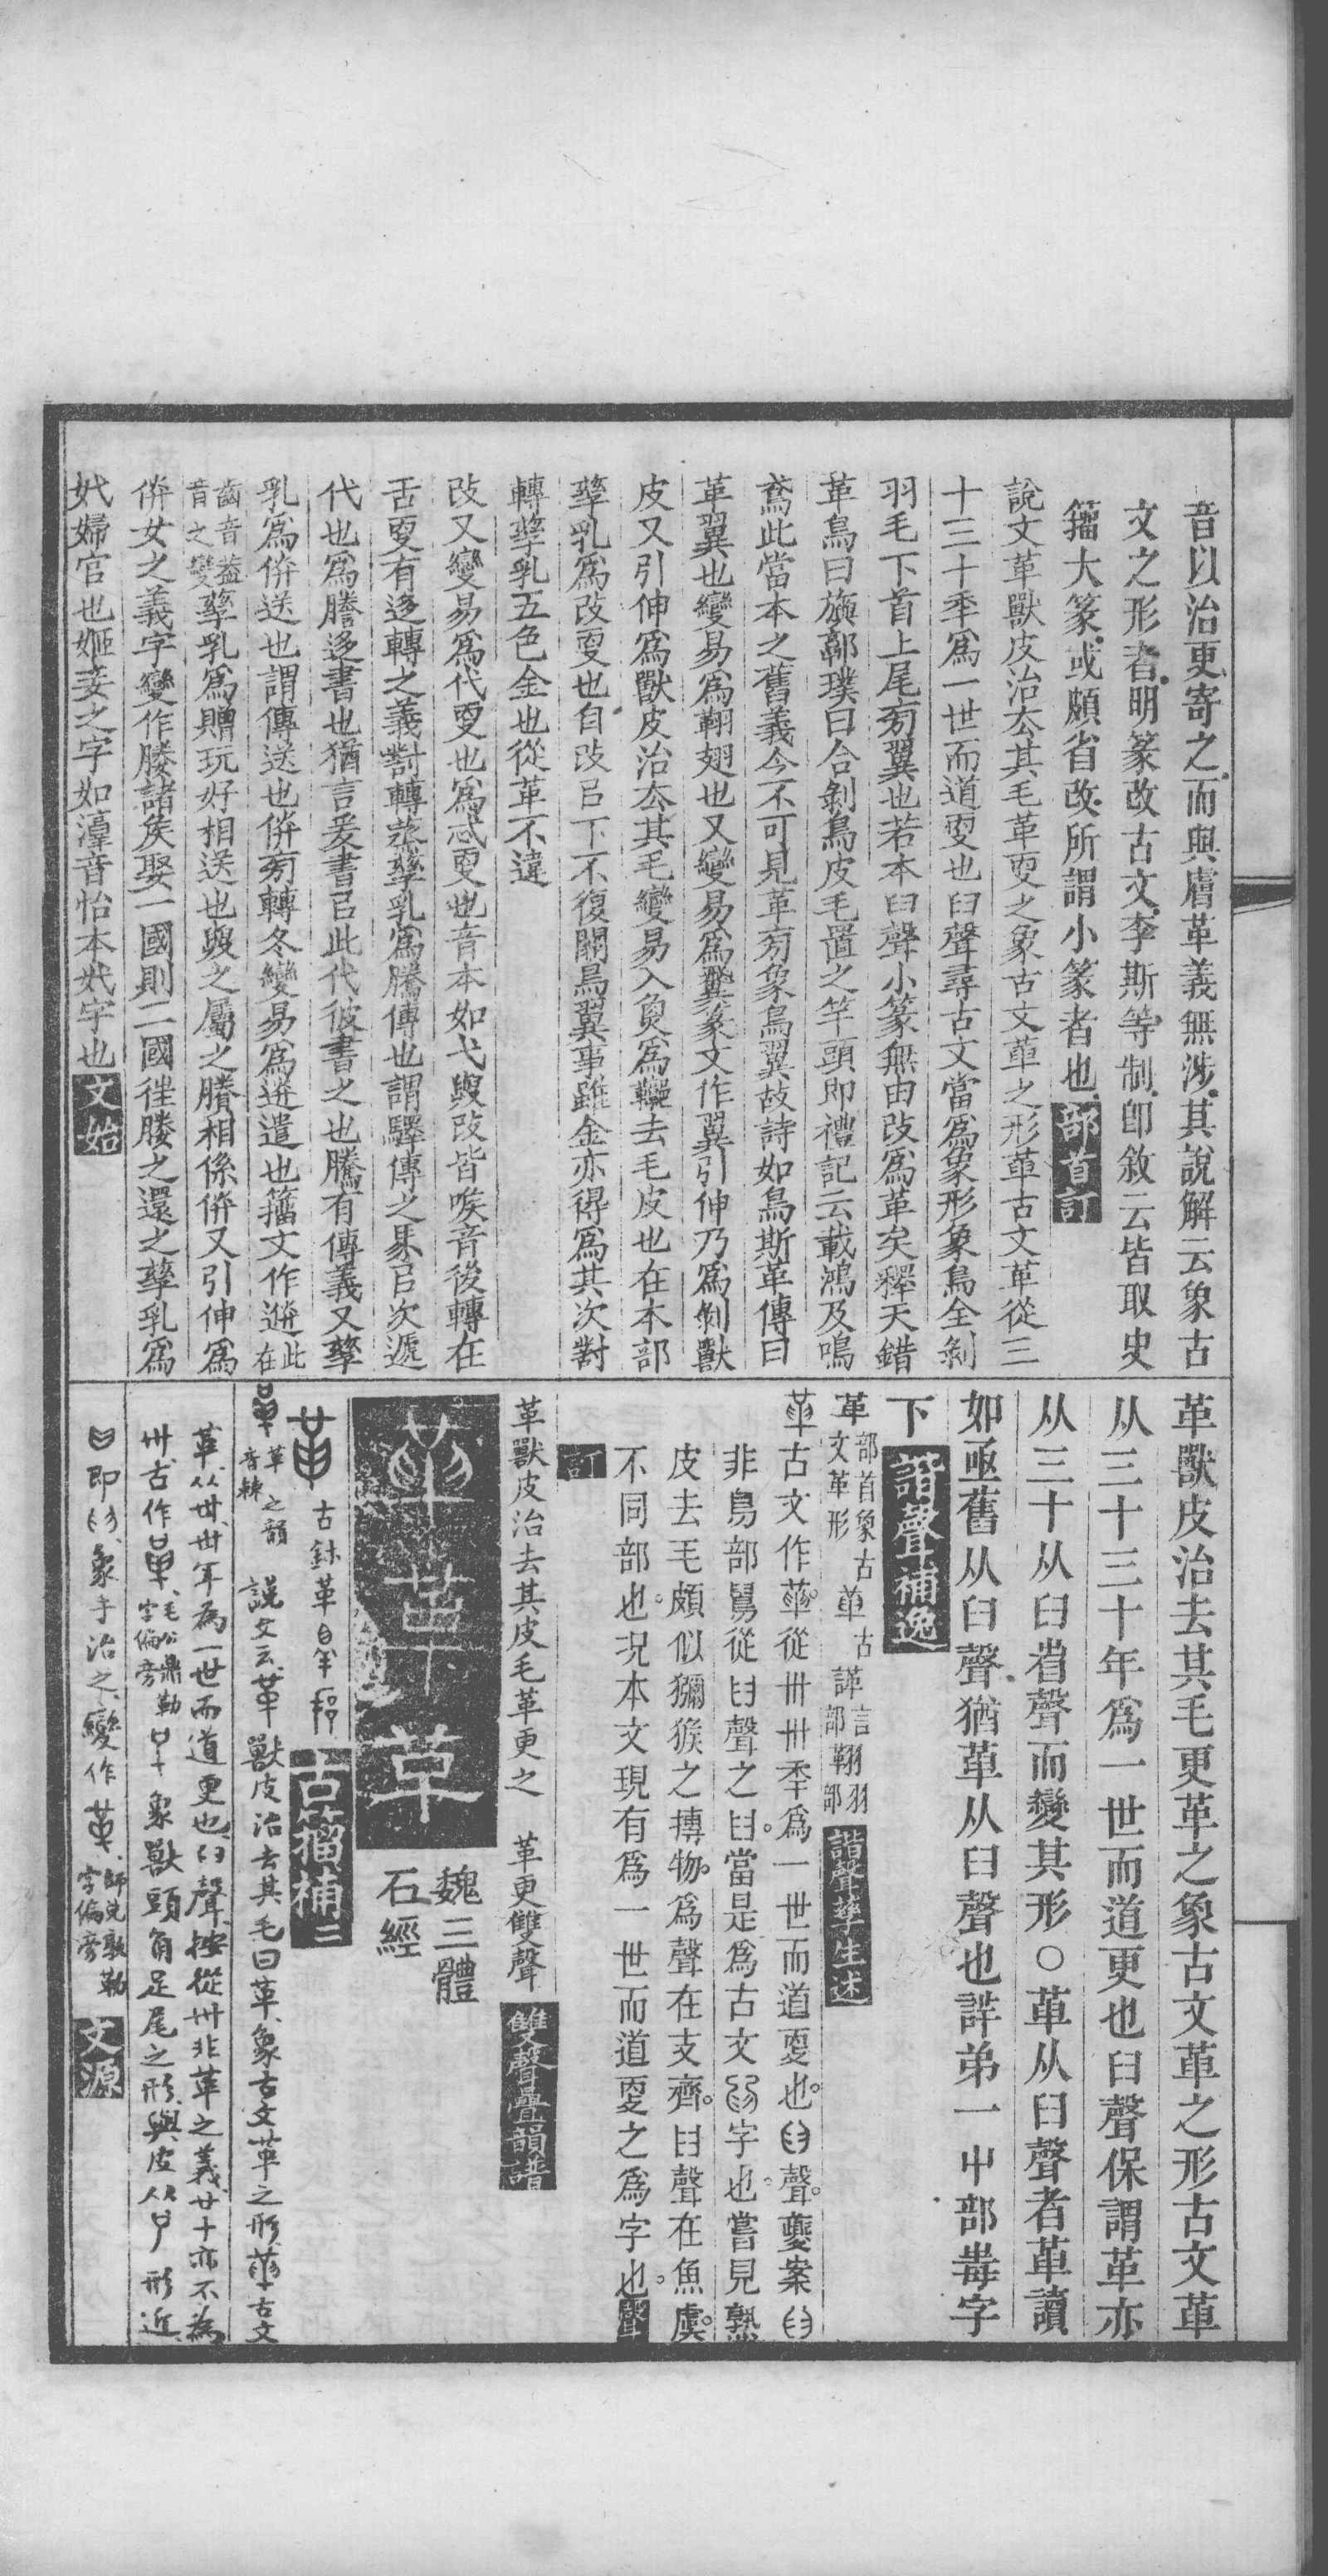 音以治更寄之而與膚革義無涉其說解云象古
文之形者明篆改古文李斯等制卽敘云皆取史
籒大篆或頗省改所謂小篆者也部首訂
說文革獸皮治厺其毛革㪅之象古文革之形革古文革從三
十三十秊爲一世而道㪅也臼聲尋古文當爲象形象鳥全剝
羽毛下首上尾㫄翼也若本臼聲小篆無由改爲革矣釋天錯
革鳥曰旟郭璞曰合剝鳥皮毛置之竿頭即禮記云載鴻及鳴
鳶此當本之舊義今不可見革㫄象鳥翼故詩如鳥斯革傳曰
革翼也變易爲䩮翅也又變易爲翼篆文作翼引伸乃爲剝獸
皮又引伸爲獸皮治厺其毛變易入負爲鞹去毛皮也在本部
孳乳爲改㪅也自改㠯下不復關鳥翼事雖金亦得爲其次對
轉孳乳五色金也從革不違
改又變易爲代㪅也爲忒㪅也音本如弋與改皆喉音後轉在
舌㪅有迻轉之義對轉蒸孳乳爲騰傳也謂驛傳之䭾㠯次遞
代也爲謄迻書也猶言爰書㠯此代彼書之也騰有傳義又孳
乳爲倂送也謂傳送也倂㫄轉冬變易爲送遣也籒文作𨕖此在
齒音益音之變孳乳爲贈玩好相送也與之屬之賸相係倂又引伸爲
倂女之義字變作媵諸矦娶一國則二國徃媵之還之孳乳爲
妷婦官也姬妾之字如漳音怡本妷字也文始
革獸皮治去其毛更革之象古文革之形古文革
从三十三十年爲一世而道更也臼聲保謂革亦
从三十从臼省聲而變其形○革从臼聲者革讀
如亟舊从臼聲猶革从臼聲也詳弟一屮部毒字
下諧聲補逸
革部首象古文革形革古諽言部䩮羽部諧聲孳生述
革古文作革從卅卅秊爲一世而道㪅也臼聲夔案臼
非鳥部舄從臼聲之臼當是爲古文字也嘗見熟
皮去毛頗似獼猴之摶物爲聲在支齊臼聲在魚虞
不同部也況本文現有爲一世而道㪅之爲字也聲
訂
革獸皮治去其皮毛革更之　革更雙聲雙聲疊韻譜
革革革魏三體石經
革古鉢革古籒補二
革之韻音棘說文云革獸皮治去其毛曰革象古文革之形革古文
革从卅卅年爲一世而道更也臼聲按從卅非革之義廿十亦不爲
卅古作革毛公鼎勒字偏旁象獸頭角足尾之形與皮从形近
臼即臼象手治之變作革師兌敦勒字偏旁文源